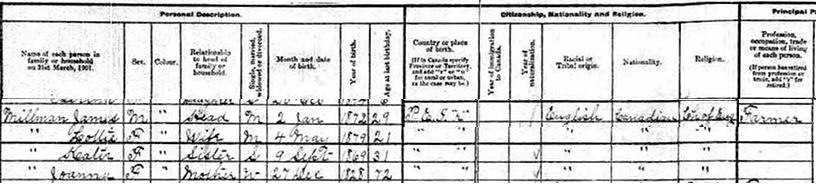 Personal Description. Citizenship, Nationality and Religion. Principal P
Name of each person in family or household on 31st March, 1901. Sex. Colour. Relationship to head of family or household. Single, married, widowed or divorced. Month and date of birth. Year of birth. Age at last birthday. Country or place of birth. (If in Canada specify Province or Territory, and add "r" or "u" for rural or urban, as the case may be.) Year of immigration to Canada. Year of naturalization. Racial or Tribal origin. Nationality. Religion. Profession, occupation, trade or means of living of each person. (If person has retired from profession or trade, add "r" for retired.)
Millman James M " Head M 2 Jan 1872 29 P.E.I. r English Canadian Ch of Eng Farmer
" Lottie F " Wife M 4 May 1879 21 " " " " "
" Katie F " Sister S 9 Sept 1869 31 " " " " "
" Joanna F " Mother W 27 Dec 1828 72 " " " " "